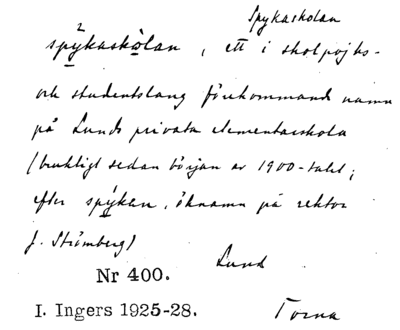 Spykaskolan
spýkaskòlan, ett i skolpojks-
och studentslang förekommande namn
på Lunds privata elementarskola
(brukligt sedan början av 1900-talet;
efter spýken, öknamn på rektor
J. Strömberg)
Lund
Nr 400.
I. Ingers 1925-28.
Torna